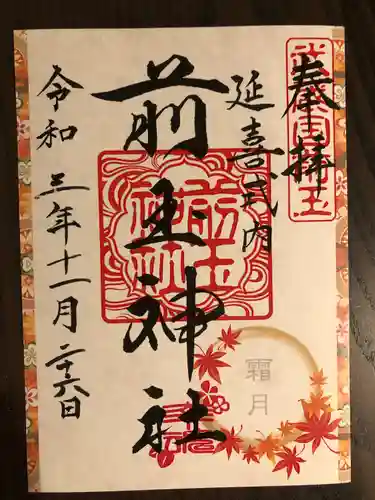 奉拝
延喜式内
前玉神社
令和三年十一月二十六日
霜月
前玉神社